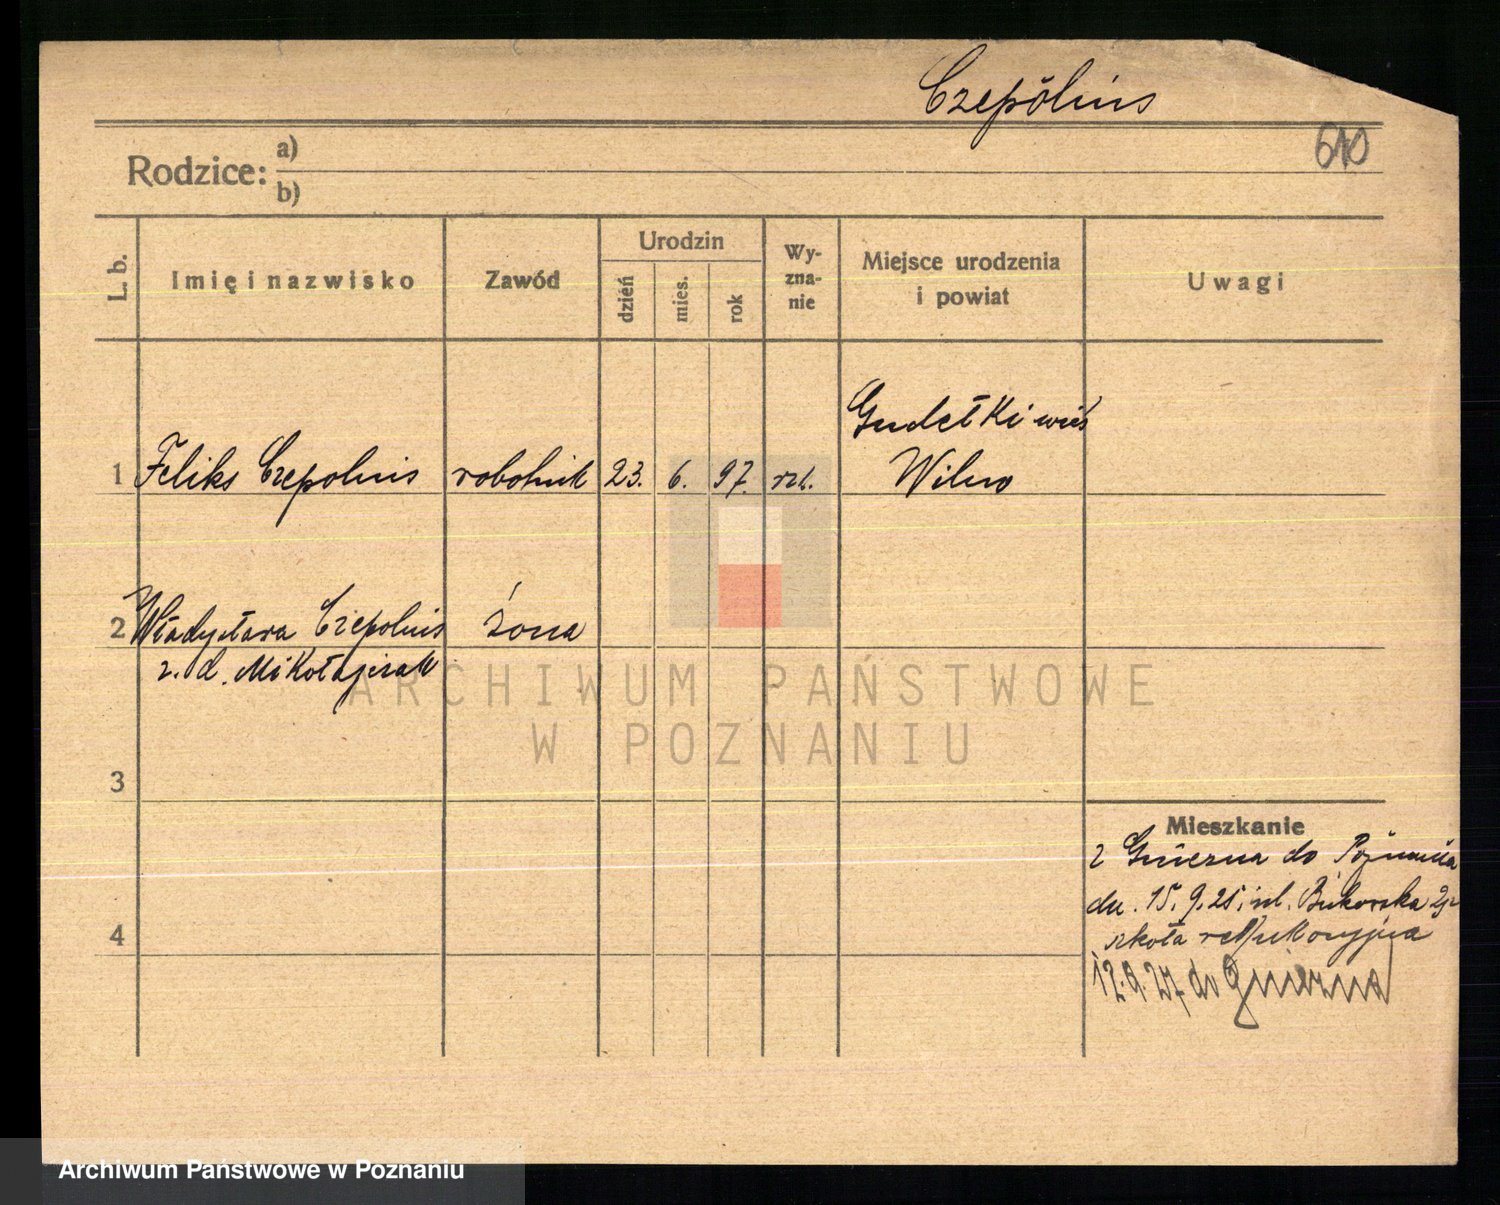 Czepólnis
610
Rodzice: a)
b)
L. b.
Imię i nazwisko
Zawód
Urodzin
dzień
mies.
rok
Wy-
zna-
nie
Miejsce urodzenia
i powiat
Uwagi
Gudełki wieś
1 Feliks Czepolnis robotnik 23. 6. 97. rzk. Wilno
2 Władysława Czepolnis żona
z. d. Mikołajczak
ARCHIWUM PAŃSTWOWE
W POZNANIU
3
Mieszkanie
z Gniezna do Poznania
dn. 15. 9. 25. ul. Bukowska
4
szkoła
12.9.27 do Gniezna
Archiwum Państwowe w Poznaniu